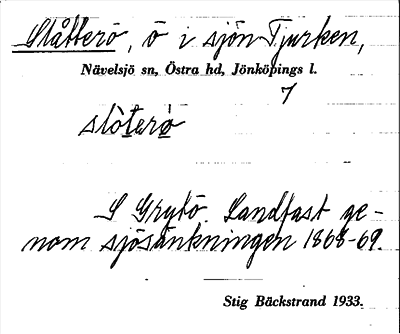 Slåtterö, ö i sjön Tjurken,
Nävelsjö sn, Östra hd, Jönköpings l.
7
slòterö̀
S Grytö. Landfast ge-
nom sjösänkningen 1868-69.
Stig Bäckstrand 1933.